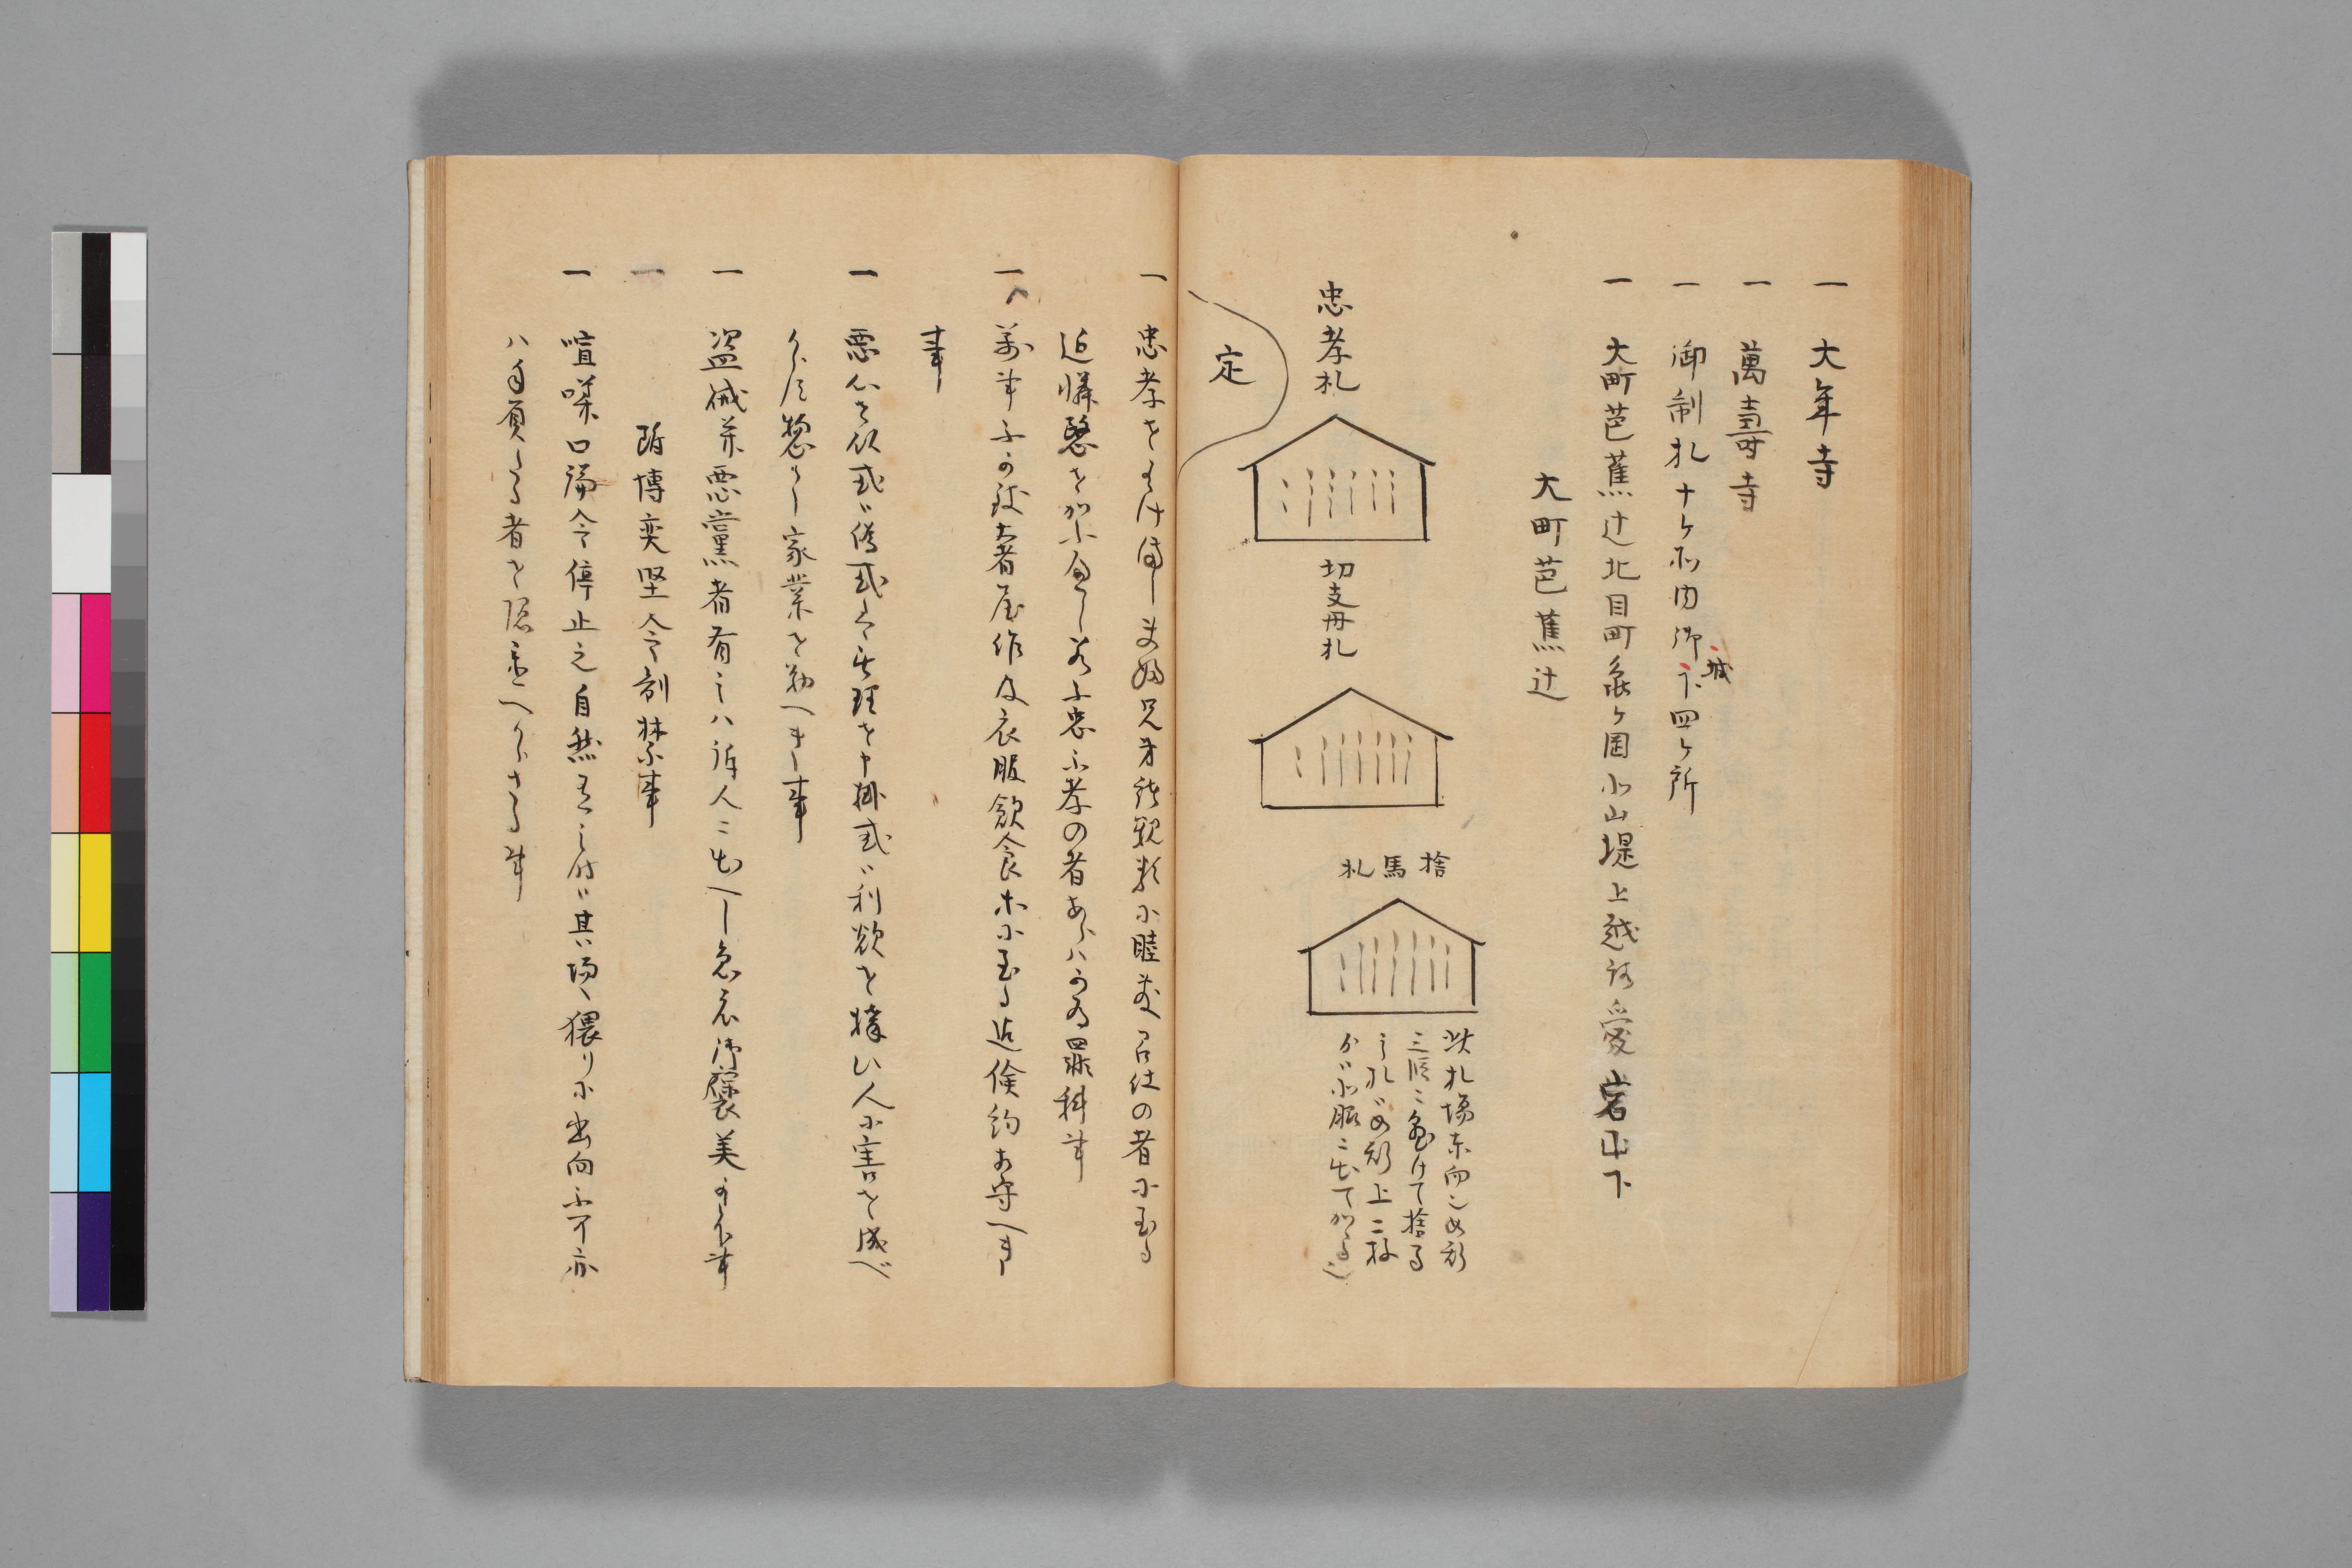 一 大年寺
一 萬壽寺
一 御制札十ケ所内御城下四ケ所
一 大町芭蕉辻北目町亀ケ岡小山堤上越路愛宕山下
大町芭蕉辻
忠孝札
切支丹札
捨馬札
此札場東向
三
捨馬
之札
定
一 忠孝をはけまし夫婦兄弟諸親類に睦敷召仕の者に至る
迄憐愍をかふへし若不忠不孝の者あらハ可為罪科事
一 萬事不可致奢屋作衣服飲食ホに至る迄倹約相守へき
事
一 悪心を以或ハ偽或ハ無理を申掛或ハ利欲を構ひ人に害を成べ
からす惣而家業を勤へき事
一 盗賊并悪黨者有之ハ訴人ニ出へし急度御褒美可被下事
一 附博奕堅令制禁事
一 喧嘩口論令停止之自然有之時ハ其場猥りに出向不可亦
ハ手負たる者を隠置へからさる事